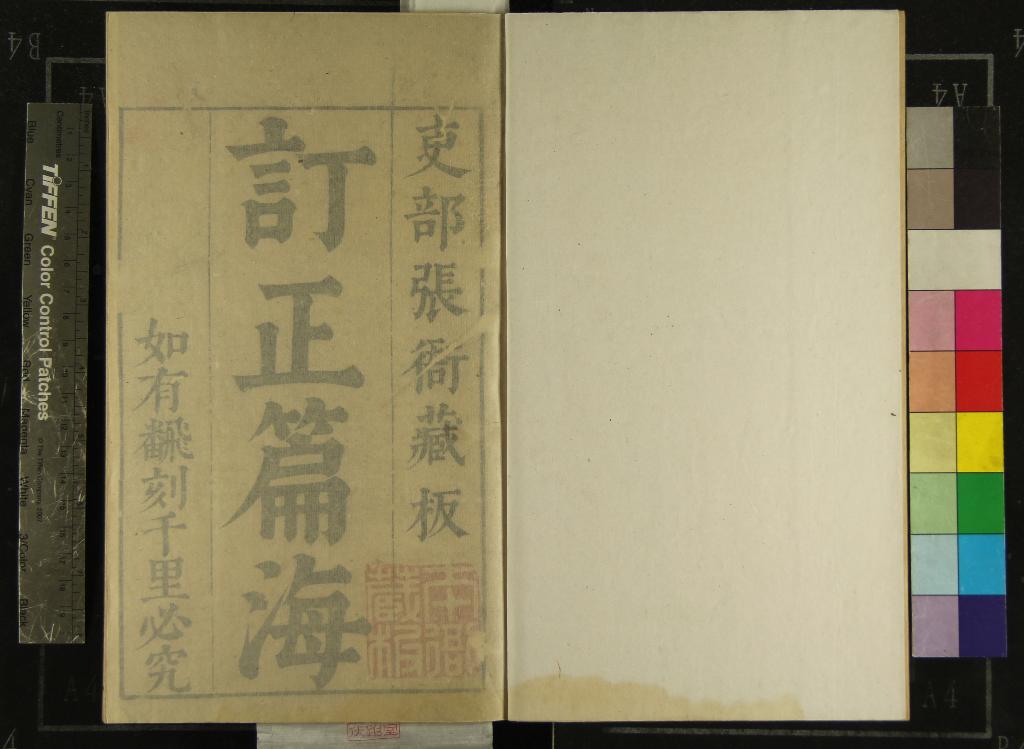 吏部張衙藏板
訂正篇海
如有飜刻千里必究
TIFFEN Color Control Patches
Blue
Cyan
Green
Yellow
Red
Magenta
White
3/Color
Black
Centimetres
Inches
B4
A4
A4
A4
A4